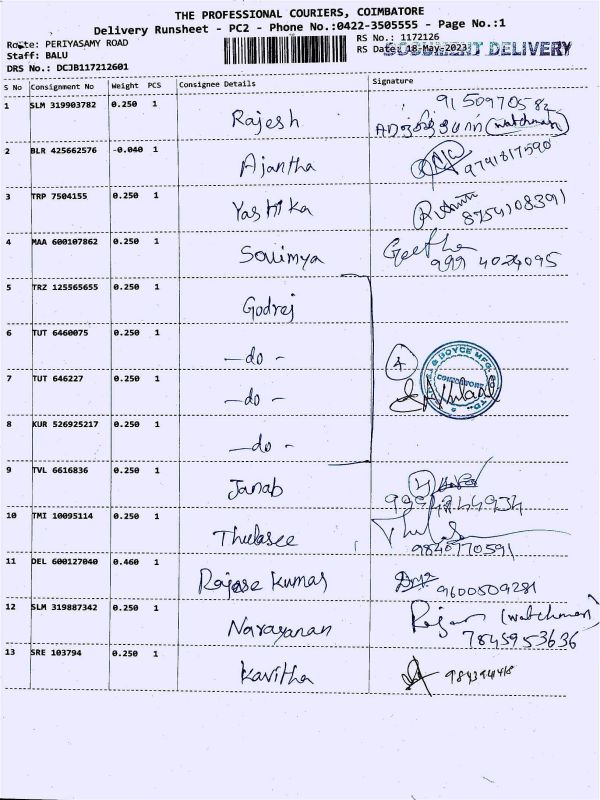 THE PROFESSIONAL COURIERS, COIMBATORE
Delivery Runsheet - PC2 - Phone No.:0422-3505555 - Page No.:1
Route: PERIYASAMY ROAD
RS No.: 1172126
Staff: BALU
RS Date: 18-May-2023
DOCUMENT DELIVERY
DRS No.: DCJB117212601
S No Consignment No Weight PCS Consignee Details Signature
1 SLM 319903782 0.250 1 Rajesh 9150970582
(watchman)
2 BLR 425662576 -0.040 1 Ajantha 9791817590
3 TRP 7504155 0.250 1 Yashika 8754108391
4 MAA 600107862 0.250 1 Soumya Geetha
999 4024095
5 TRZ 125565655 0.250 1 Godrej
6 TUT 6460075 0.250 1 -do-
4
& BOYCE MFG.
COIMBATORE
7 TUT 646227 0.250 1 -do-
8 KUR 526925217 0.250 1 -do-
9 TVL 6616836 0.250 1 Janab
10 TMI 10095114 0.250 1 Thulasee
9840770591
11 DEL 600127040 0.460 1 Rajase Kumar 9600509281
12 SLM 319887342 0.250 1 Narayanan Rajan (watchman)
7845953636
13 SRE 103794 0.250 1 Kavitha